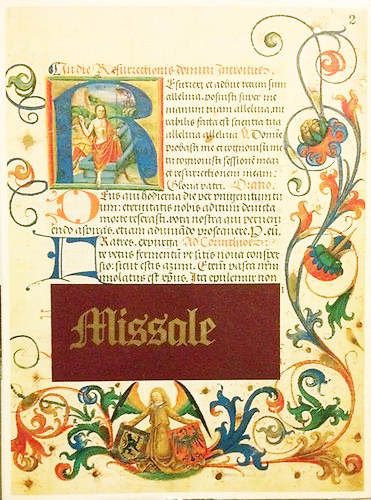 2
In die Resurrectionis domini Introitus.
Resurrexi, et adhuc tecum sum
alleluia. posuisti super me
manum tuam alleluia, mi
rabilis facta est scientia tua
alleluia alleluia V. Domine
probasti me et cognouisti me
tu cognouisti sessionē meā
et resurrectionem meam.
Gloria patri. Oratio.
Deus qui hodierna die per vnigenitum tu
um: eternitatis nobis aditum deuicta
morte reserasti: vota nostra que preueni
endo aspiras, etiam adiuuādo prosequere. P. eū
Fratres. expurga Ad Corinthios
te vetus fermentū vt sitis noua consper
sio: sicut estis azimi. Etenī pascha nrm
immolatus est xp̄us. Ita epulemur non
Missale